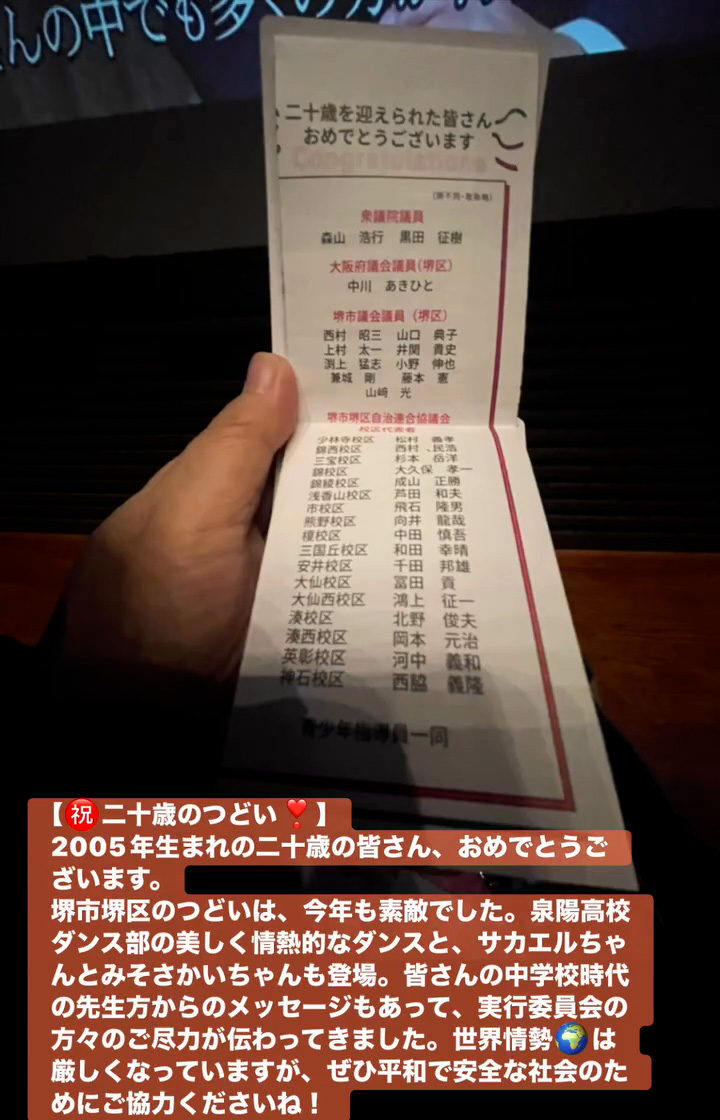 んの中でも多くの方が
二十歳を迎えられた皆さん
おめでとうございます
Congratulations
(順不同・敬称略)
衆議院議員
森山 浩行 黒田 征樹
大阪府議会議員(堺区)
中川 あきひと
堺市議会議員(堺区)
西村 昭三 山口 典子
上村 太一 井関 貴史
渕上 猛志 小野 伸也
兼城 剛 藤本 憲
山﨑 光
堺市堺区自治連合協議会
校区代表者
少林寺校区 松村 義孝
錦西校区 西村 民浩
三宝校区 杉本 岳洋
錦校区 大久保 孝一
錦綾校区 成山 正勝
浅香山校区 芦田 和夫
市校区 飛石 隆男
熊野校区 向井 龍哉
榎校区 中田 慎吾
三国丘校区 和田 幸晴
安井校区 千田 邦雄
大仙校区 冨田 貢
大仙西校区 鴻上 征一
湊校区 北野 俊夫
湊西校区 岡本 元治
英彰校区 河中 義和
神石校区 西脇 義隆
青少年指導員一同
【㊗️二十歳のつどい❣️】
2005年生まれの二十歳の皆さん、おめでとうご
ざいます。
堺市堺区のつどいは、今年も素敵でした。泉陽高校
ダンス部の美しく情熱的なダンスと、サカエルちゃ
んとみそさかいちゃんも登場。皆さんの中学校時代
の先生方からのメッセージもあって、実行委員会の
方々のご尽力が伝わってきました。世界情勢🌍は
厳しくなっていますが、ぜひ平和で安全な社会のた
めにご協力くださいね！